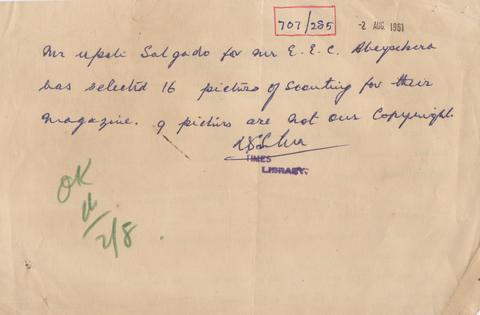 707/285
-2 AUG. 1961
Mr Upali Salgado for Mr E. E. C. Abeysekera
has selected 16 pictures of Scouting for their
Magazine. 9 picturs are not our Copyright.
TIMES
LIBRARY.
OK
2/8